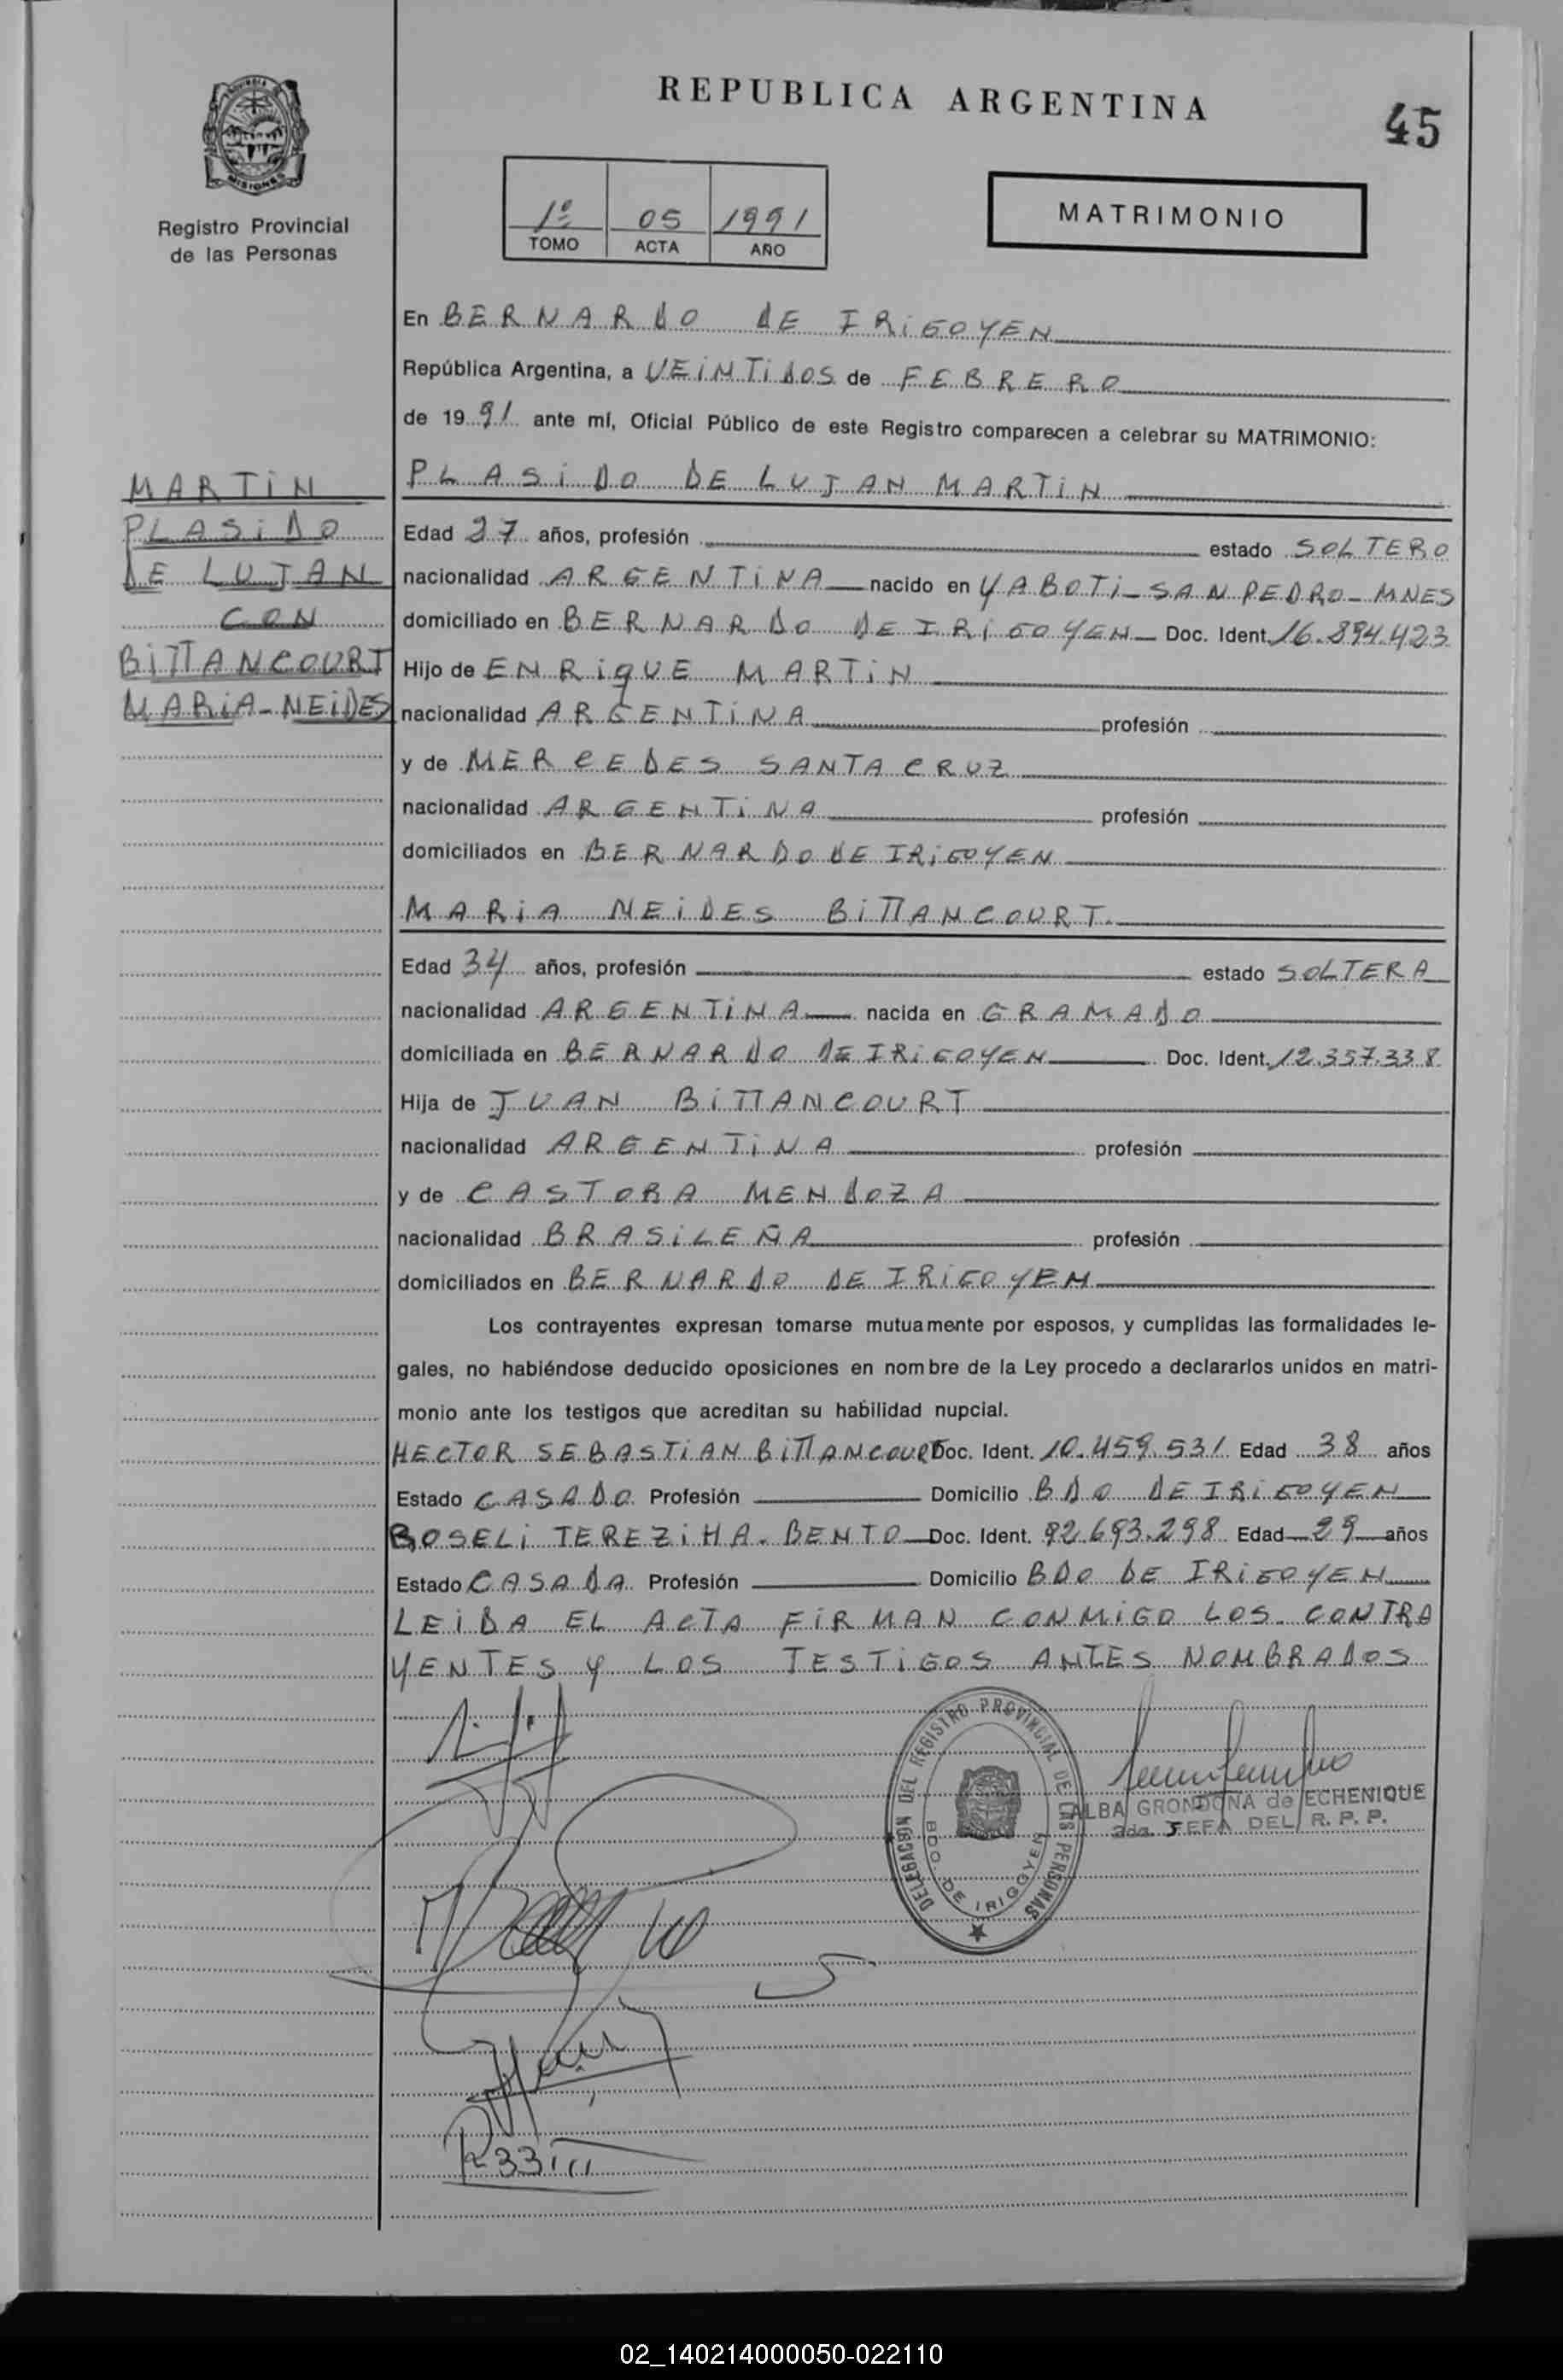 REPUBLICA ARGENTINA
45
MISIONES
Registro Provincial
de las Personas
1º 05 1991
TOMO ACTA AÑO
MATRIMONIO
En BERNARDO DE IRIGOYEN
República Argentina, a VEINTIDOS de FEBRERO
de 1991 ante mí, Oficial Público de este Registro comparecen a celebrar su MATRIMONIO:
MARTIN
PLASIDO
DE LUJAN
CON
BITTANCOURT
MARIA-NEIDES
PLASIDO DE LUJAN MARTIN
Edad 27 años, profesión estado SOLTERO
nacionalidad ARGENTINA nacido en YABOTI-SAN PEDRO-MNES
domiciliado en BERNARDO DE IRIGOYEN Doc. Ident. 16.894.423
Hijo de ENRIQUE MARTIN
nacionalidad ARGENTINA profesión
y de MERCEDES SANTA CRUZ
nacionalidad ARGENTINA profesión
domiciliados en BERNARDO DE IRIGOYEN
MARIA NEIDES BITTANCOURT
Edad 34 años, profesión estado SOLTERA
nacionalidad ARGENTINA nacida en GRAMADO
domiciliada en BERNARDO DE IRIGOYEN Doc. Ident. 12.357.338
Hija de JUAN BITTANCOURT
nacionalidad ARGENTINA profesión
y de CASTORA MENDOZA
nacionalidad BRASILEÑA profesión
domiciliados en BERNARDO DE IRIGOYEN
Los contrayentes expresan tomarse mutuamente por esposos, y cumplidas las formalidades le-
gales, no habiéndose deducido oposiciones en nombre de la Ley procedo a declararlos unidos en matri-
monio ante los testigos que acreditan su habilidad nupcial.
HECTOR SEBASTIAN BITTANCOURT Doc. Ident. 10.459.531 Edad 38 años
Estado CASADO Profesión Domicilio BDO DE IRIGOYEN
ROSELI TEREZIHA. BENTO Doc. Ident. 92.693.298 Edad 29 años
Estado CASADA Profesión Domicilio BDO DE IRIGOYEN
LEIDA EL ACTA FIRMAN CONMIGO LOS CONTRA
YENTES Y LOS TESTIGOS ANTES NOMBRADOS
DELEGACION DEL REGISTRO PROVINCIAL DE LAS PERSONAS
BDO. DE IRIGOYEN
ALBA GRONDONA de ECHENIQUE
2da. JEFA DEL R. P. P.
02_140214000050-022110